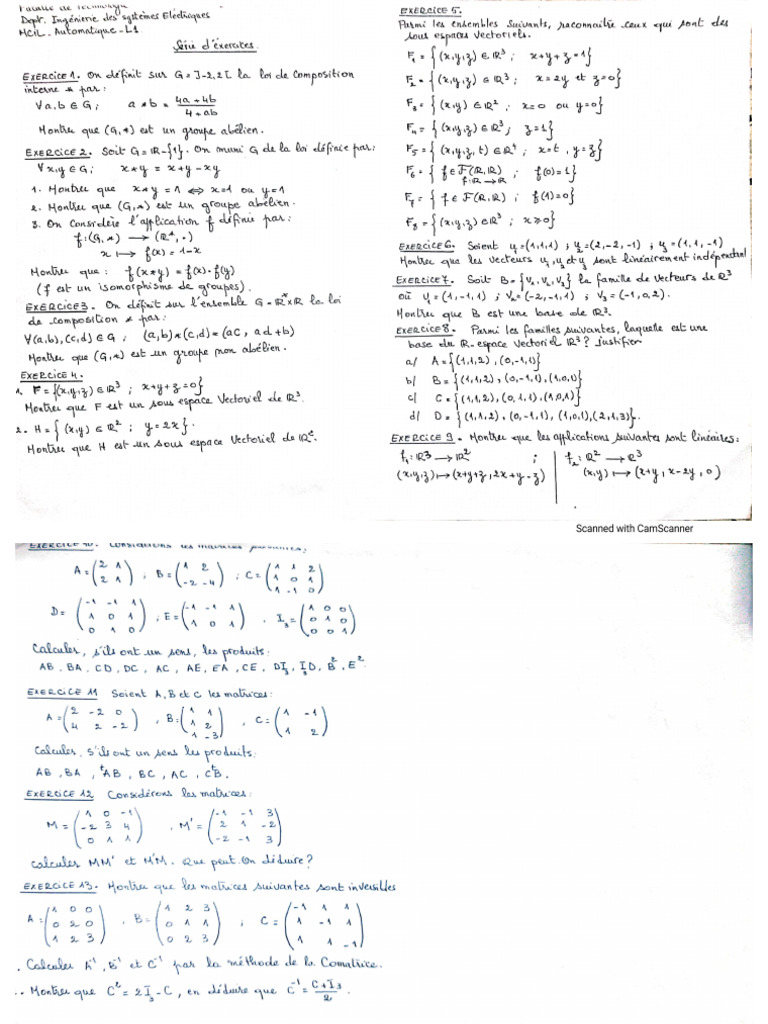 Faculté de Technologie
Dept. Ingénierie des systèmes Electriques
MCIL. Automatique-L1
Série d'éxercices
EXERCICE 1. On définit sur G=]-2,2[ la loi de composition
interne * par:
∀a,b ∈ G ; a*b = (4a+4b)/(4+ab)
Montrer que (G,*) est un groupe abélien.
EXERCICE 2. Soit G=ℝ-{1}. On muni G de la loi définie par:
∀x,y ∈ G ; x*y = x+y-xy
1. Montrer que x*y=1 ⇔ x=1 ou y=1
2. Montrer que (G,*) est un groupe abélien.
3. On Considère l'application f définie par:
f:(G,*) → (ℝ*, .)
x ↦ f(x)=1-x
Montrer que : f(x*y) = f(x).f(y)
(f est un isomorphisme de groupes).
EXERCICE 3. On définit sur l'ensemble G=ℝ*×ℝ la loi
de composition * par:
∀(a,b),(c,d) ∈ G ; (a,b)*(c,d)=(ac, ad+b)
Montrer que (G,*) est un groupe non abélien.
EXERCICE 4.
1. F={(x,y,z) ∈ ℝ³ ; x+y+z=0}
Montrer que F est un sous espace vectoriel de ℝ³.
2. H={(x,y) ∈ ℝ² ; y=2x}.
Montrer que H est un sous espace vectoriel de ℝ².
EXERCICE 5.
Parmi les ensembles suivants, reconnaitre ceux qui sont des
sous espaces vectoriels.
F₁={(x,y,z) ∈ ℝ³ ; x+y+z=1}
F₂={(x,y,z) ∈ ℝ³ ; x=2y et z=0}
F₃={(x,y) ∈ ℝ² ; x=0 ou y=0}
F₄={(x,y,z) ∈ ℝ³ ; z=1}
F₅={(x,y,z,t) ∈ ℝ⁴ ; x=t, y=z}
F₆={f ∈ F(ℝ,ℝ) ; f(0)=1}
f:ℝ→ℝ
F₇={f ∈ F(ℝ,ℝ) ; f(1)=0}
F₈={(x,y,z) ∈ ℝ³ ; x≥0}
EXERCICE 6. Soient v₁=(1,1,1) ; v₂=(2,-2,-1) ; v₃=(1,1,-1)
Montrer que les vecteurs v₁,v₂ et v₃ sont linéairement indépendent
EXERCICE 7. Soit B={v₁,v₂,v₃} la famille de vecteurs de ℝ³
où v₁=(1,-1,1) ; v₂=(-2,-1,1) ; v₃=(-1,0,2).
Montrer que B est une base de ℝ³.
EXERCICE 8. Parmi les familles suivantes, laquelle est une
base du ℝ-espace vectoriel ℝ³? justifier
a/ A={(1,1,2),(0,-1,1)}
b/ B={(1,1,2),(0,-1,1),(1,0,1)}
c/ C={(1,1,2),(0,1,1),(1,0,1)}
d/ D={(1,1,2),(0,-1,1),(1,0,1),(2,1,3)}.
EXERCICE 9. Montrer que les applications suivantes sont linéaires:
f₁: ℝ3 → ℝ² ; f₂: ℝ² → ℝ³
(x,y,z) ↦ (x+y+z, 2x+y-z) (x,y) ↦ (x+y, x-2y, 0)
Scanned with CamScanner
EXERCICE 10. Considérons les matrices suivantes;
A=(2 1 / 2 1) ; B=(1 2 / -2 -4) ; C=(1 1 2 / 1 0 1 / 1 -1 0)
D=(-1 -1 1 / 1 0 1 / 0 1 0) ; E=(-1 -1 1 / 1 0 1) . I₃=(1 0 0 / 0 1 0 / 0 0 1)
Calculer, s'ils ont un sens, les produits:
AB, BA, CD, DC, AC, AE, EA, CE, DI₃, I₃D, B², E²
EXERCICE 11 Soient A, B et C les matrices:
A=(2 -2 0 / 4 2 -2) , B=(1 1 / 1 2 / 1 -3) , C=(1 -1 / 1 2)
Calculer, s'ils ont un sens les produits:
AB, BA, ᵗAB, BC, AC, CᵗB.
EXERCICE 12 Considérons les matrices:
M=(1 0 -1 / -2 3 4 / 0 1 1) , M'=(-1 -1 3 / 2 1 -2 / -2 -1 3)
Calculer MM' et M'M. Que peut-on déduire?
EXERCICE 13. Montrer que les matrices suivantes sont inversibles
A=(1 0 0 / 0 2 0 / 1 2 3) , B=(1 2 3 / 0 1 1 / 0 2 3) ; C=(-1 1 1 / 1 -1 1 / 1 1 -1)
. Calculer A⁻¹, B⁻¹ et C⁻¹ par la méthode de la Comatrice.
.. Montrer que C²=2I₃-C, en déduire que C⁻¹=(C+I₃)/2.